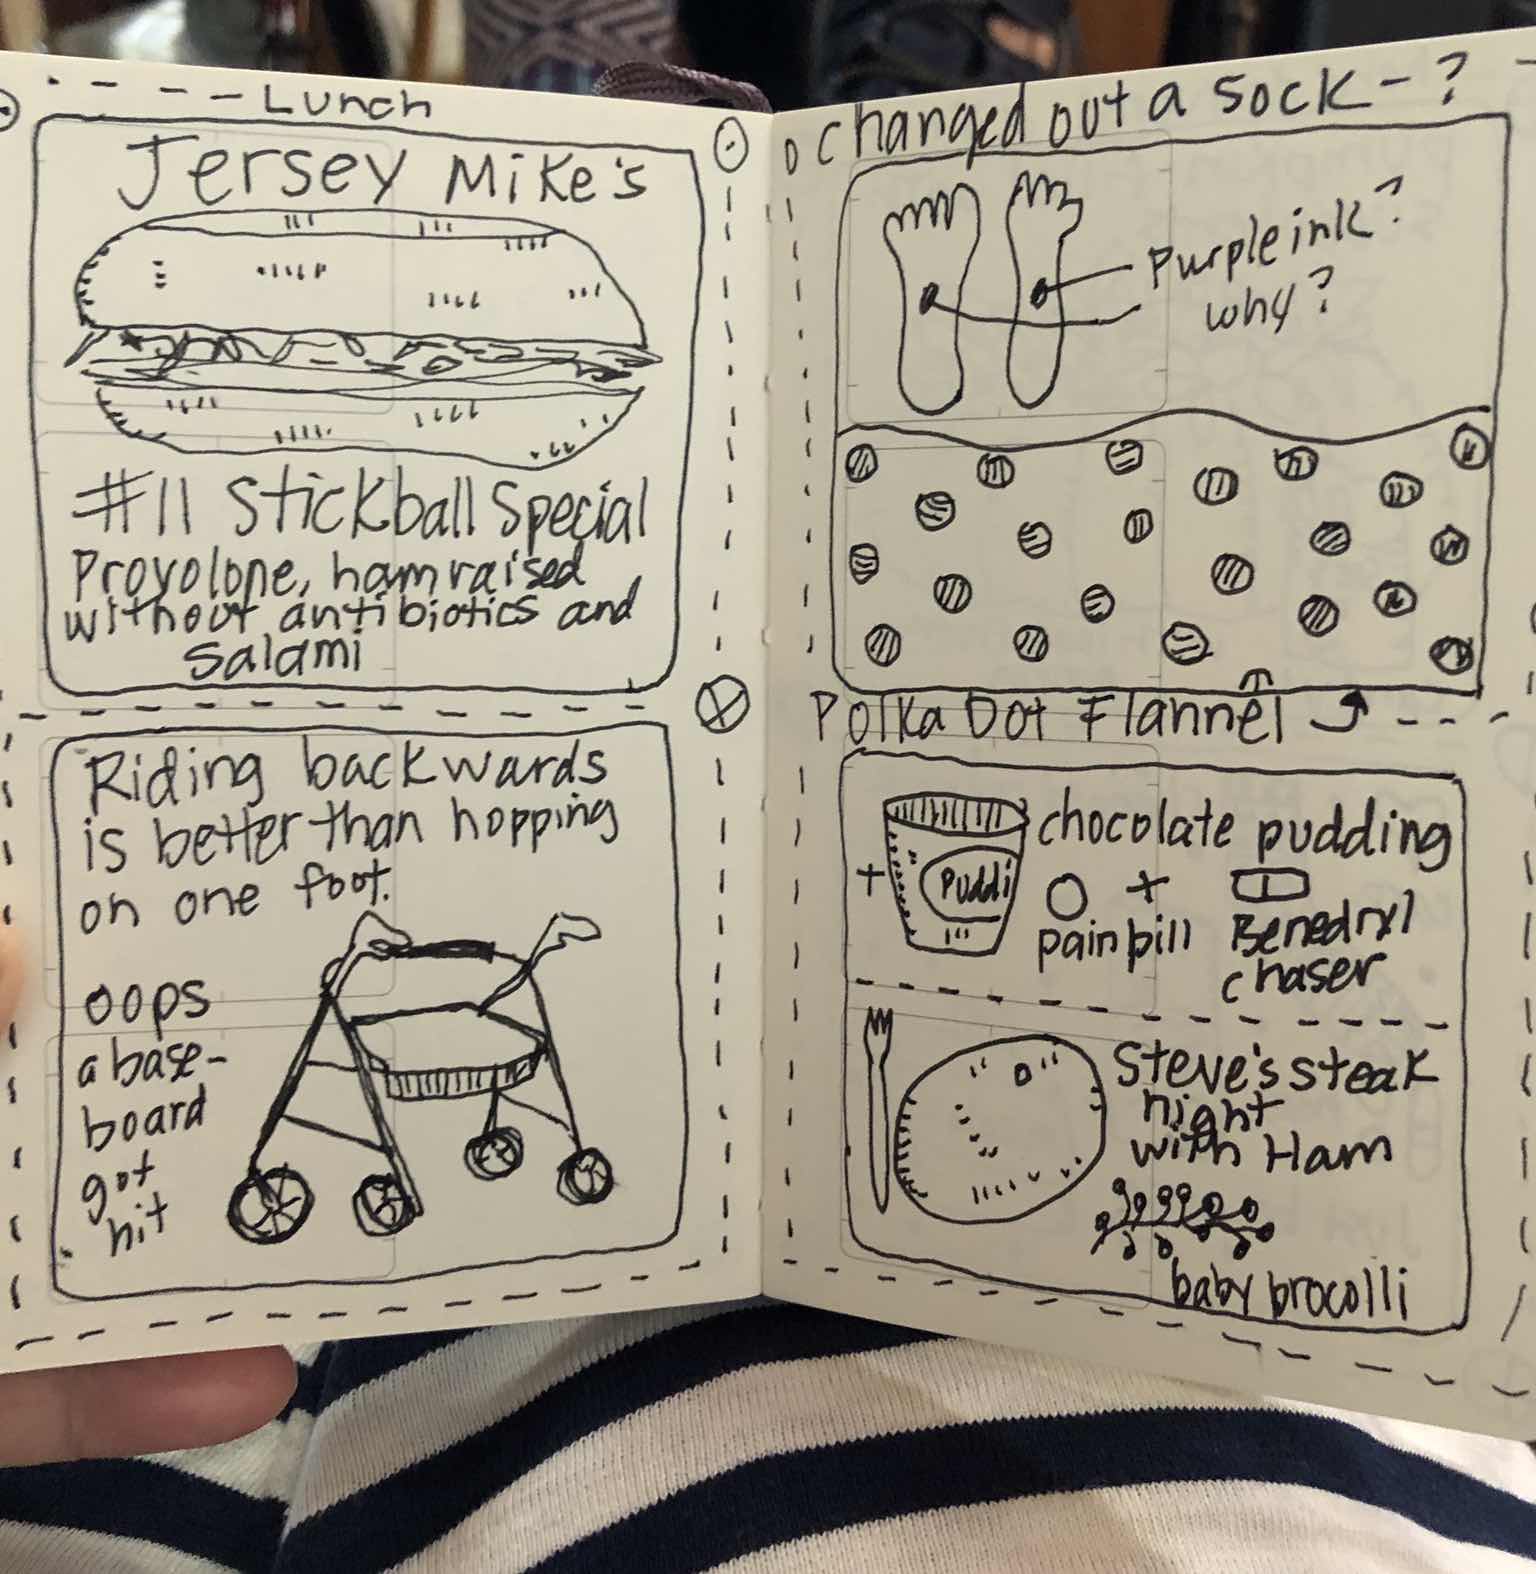 Lunch
Jersey Mike's
#11 Stickball Special
Provolone, ham raised
without antibiotics and
Salami
Riding backwards
is better than hopping
on one foot.
oops
a base-
board
got
hit
changed out a sock - ?
Purple ink?
why?
Polka Dot Flannel
+
Puddi
chocolate pudding
+
pain pill
Benedryl
chaser
Steve's steak
night
with Ham
baby brocolli